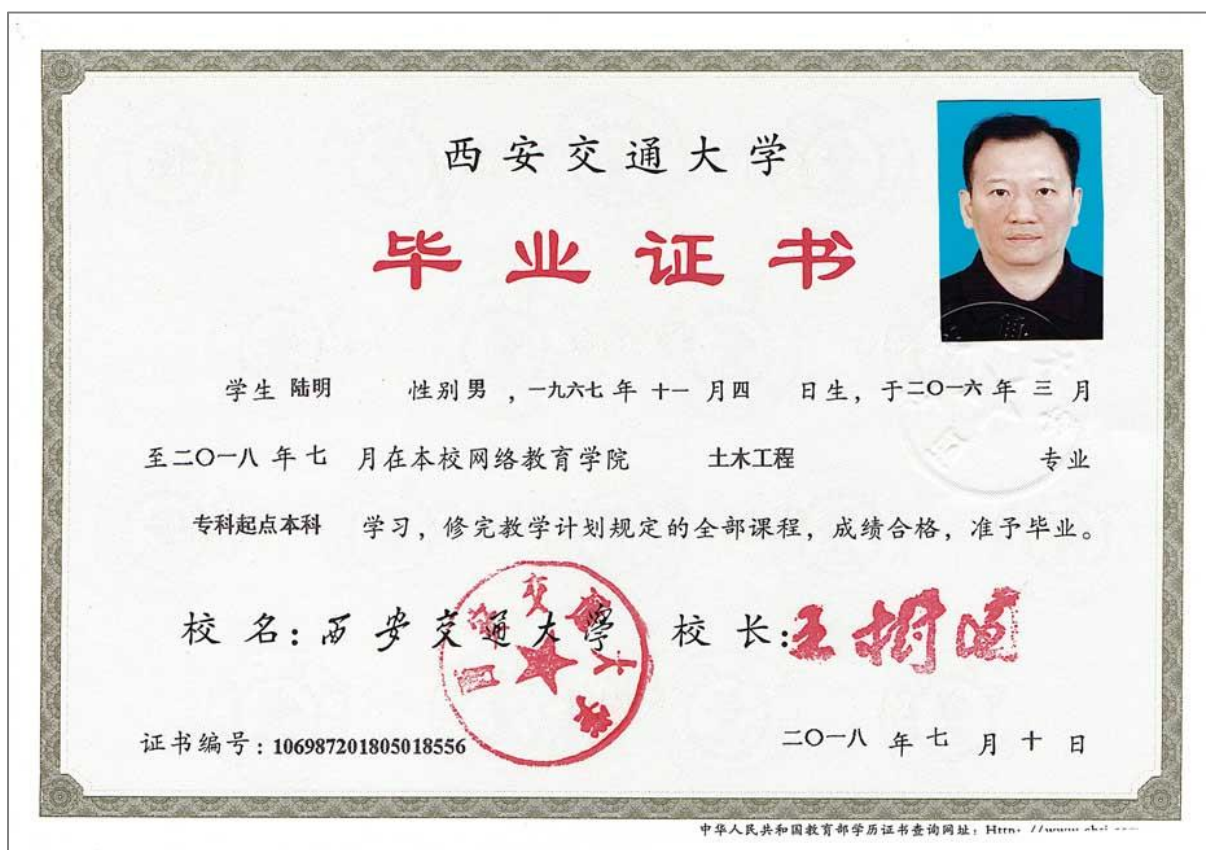 西安交通大学
毕业证书
学生 陆明 性别 男 ，一九六七 年 十一 月四 日生，于二〇一六 年 三 月
至二〇一八 年 七 月在本校网络教育学院 土木工程 专业
专科起点本科 学习，修完教学计划规定的全部课程，成绩合格，准予毕业。
校 名：西安交通大學 校 长：王树国
西安交通大学
证书编号：106987201805018556
二〇一八 年 七 月 十 日
中华人民共和国教育部学历证书查询网址：Http：//www.chsi.com